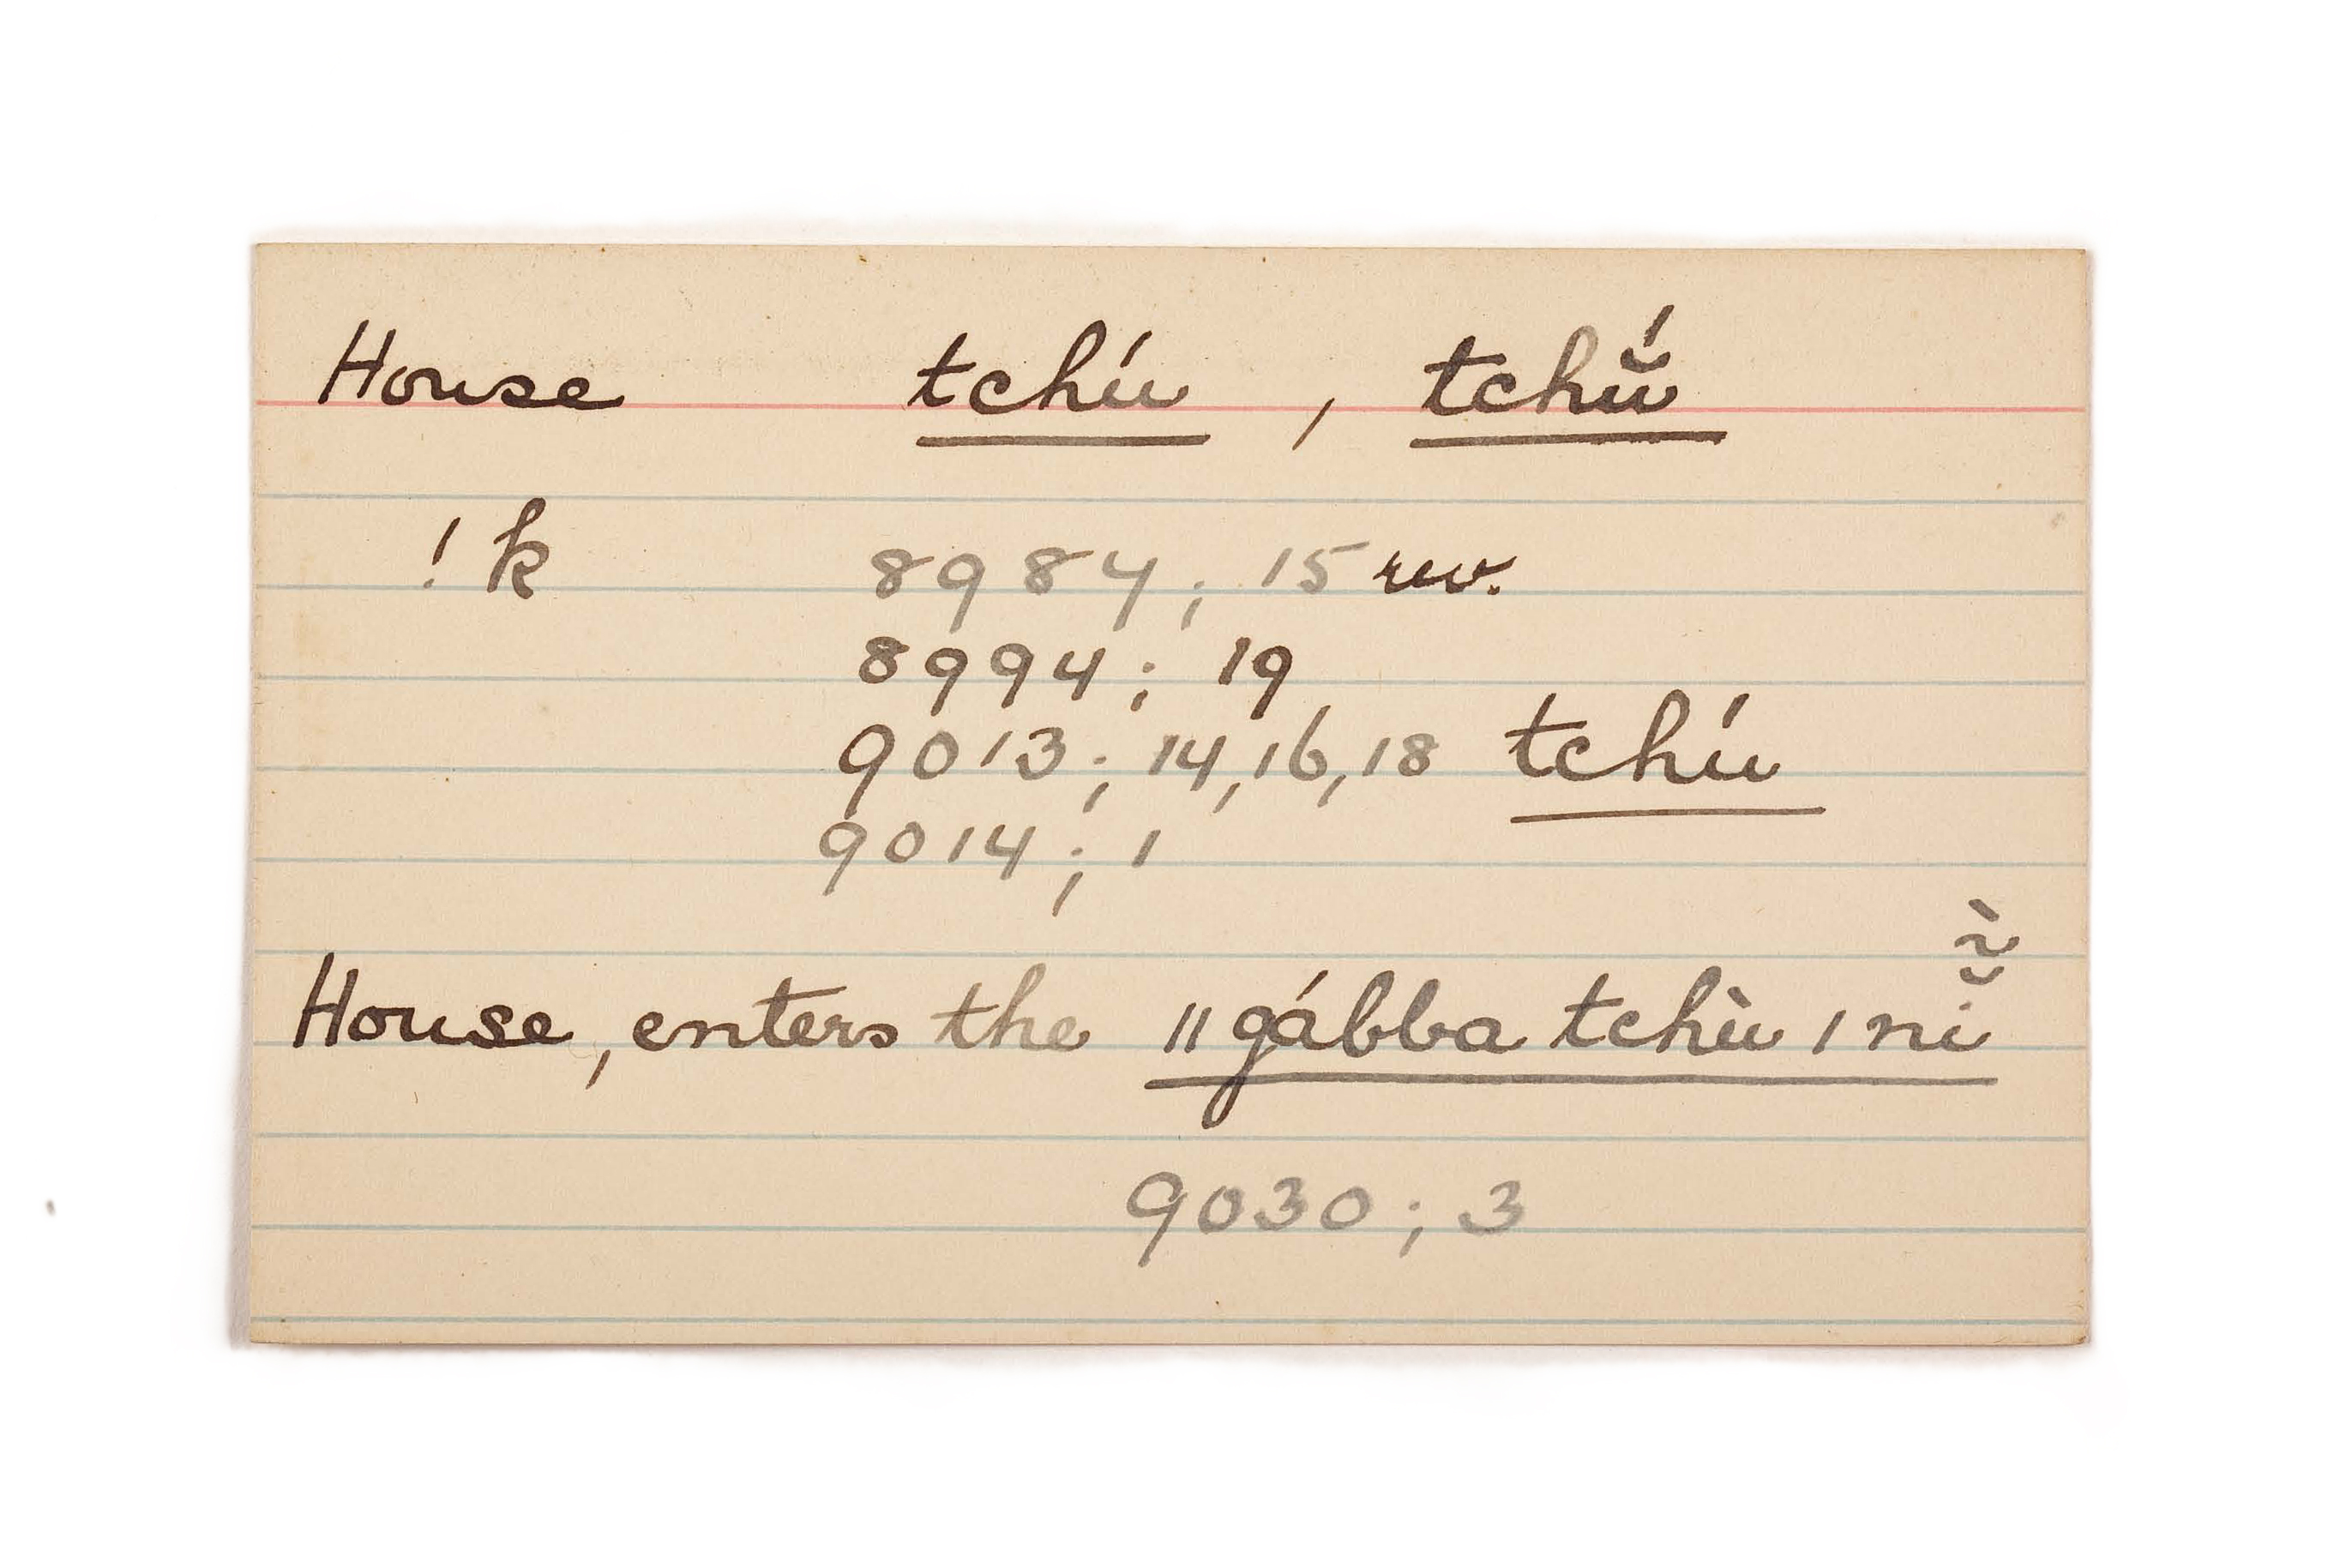 House tchú, tchŭ̈́
! k 8984; 15 rev.
8994; 19
9013; 14, 16, 18 tchú
9014; 1
House, enters the ||gábba tchù |nĭ̃̀
9030; 3